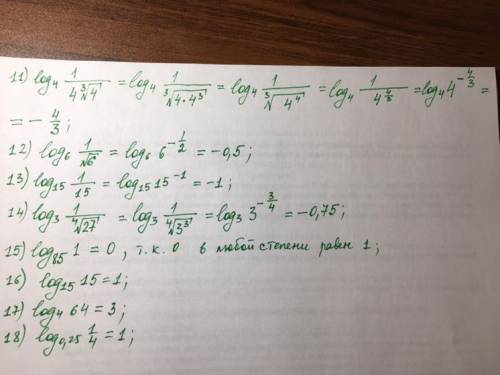 11) log₄ 1/(4∛4) = log₄ 1/∛(4·4³) = log₄ 1/∛(4⁴) = log₄ 1/4^(4/3) = log₄ 4^(-4/3) =
= - 4/3 ;
12) log₆ 1/√6 = log₆ 6^(-1/2) = -0,5 ;
13) log₁₅ 1/15 = log₁₅ 15⁻¹ = -1 ;
14) log₃ 1/⁴√27 = log₃ 1/⁴√(3³) = log₃ 3^(-3/4) = -0,75 ;
15) log₈₅ 1 = 0 , т.к. 0 в любой степени равен 1 ;
16) log₁₅ 15 = 1 ;
17) log₄ 64 = 3 ;
18) log₀,₂₅ 1/4 = 1 ;